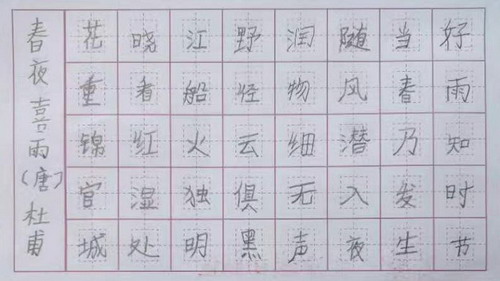 春夜喜雨(唐)杜甫
好雨知时节
当春乃发生
随风潜入夜
润物细无声
野径云俱黑
江船火独明
晓看红湿处
花重锦官城